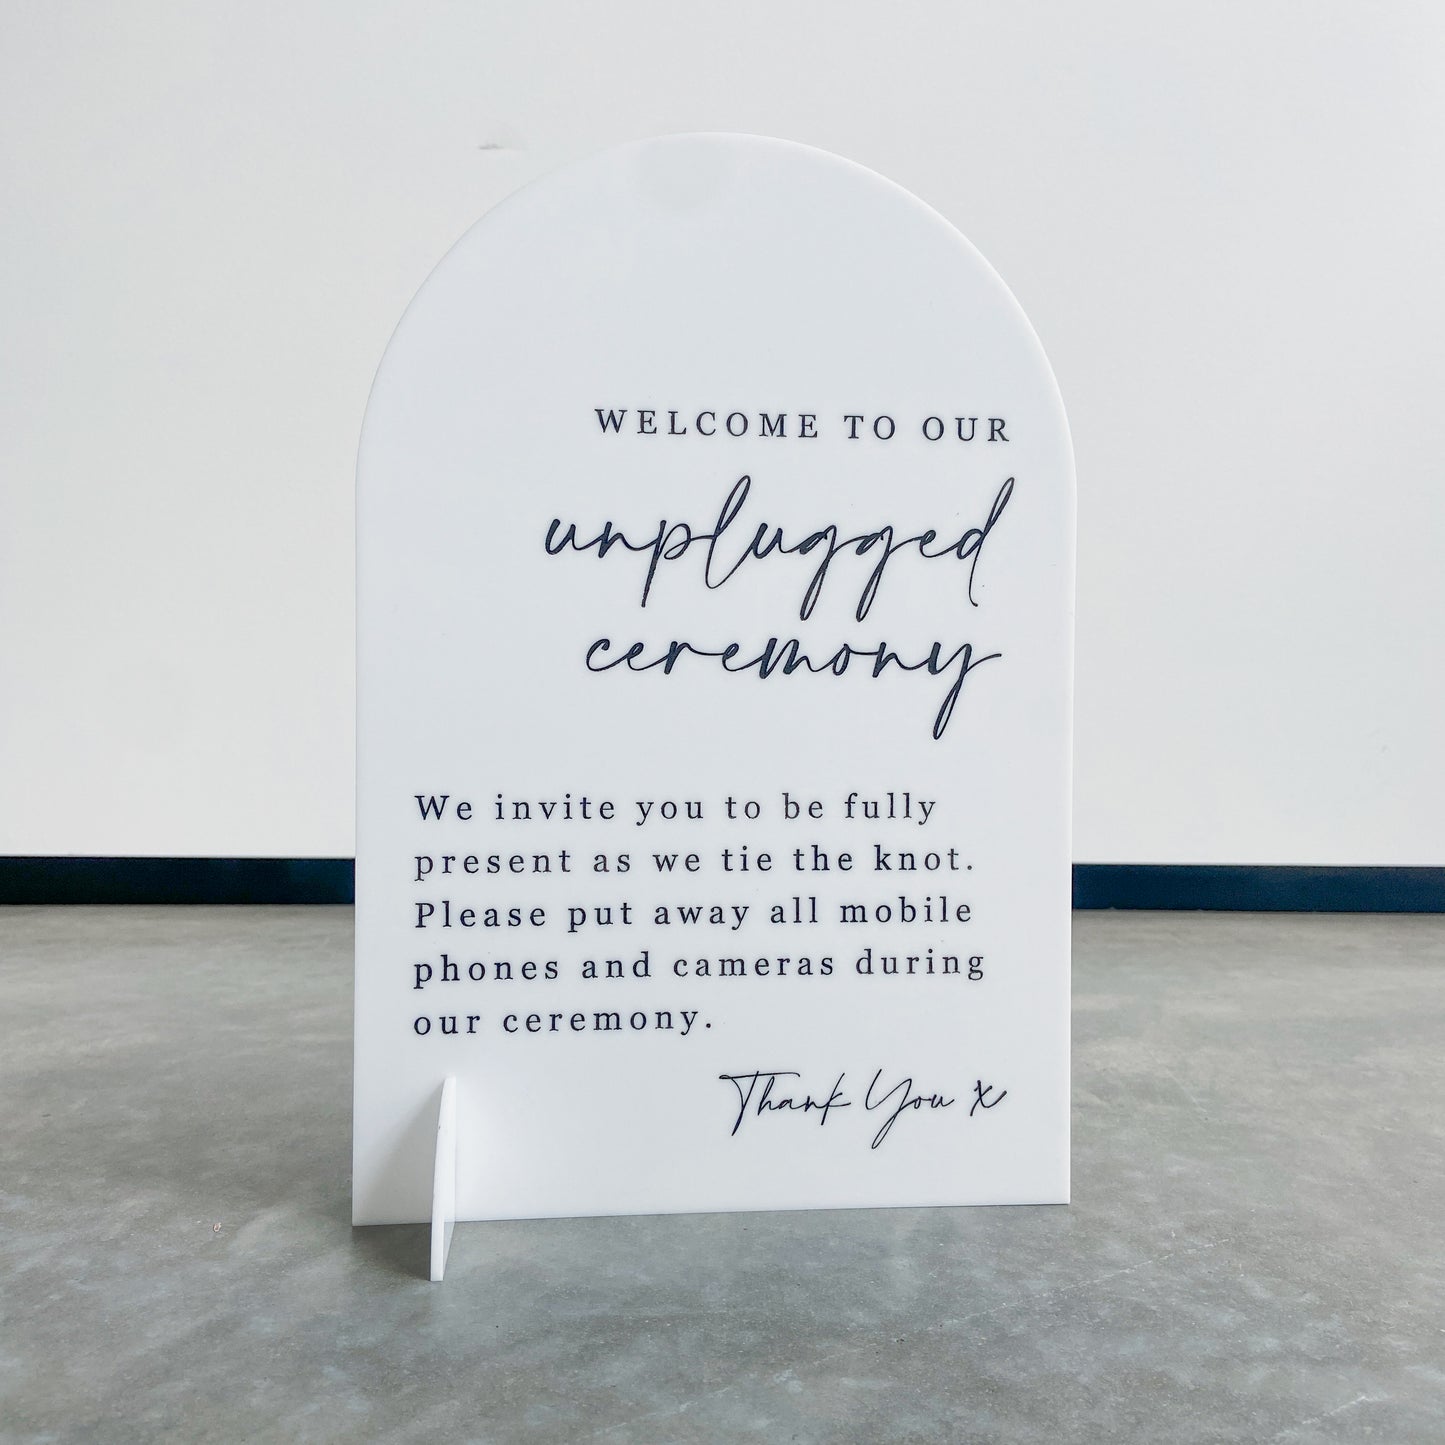 WELCOME TO OUR
unplugged
ceremony
We invite you to be fully
present as we tie the knot.
Please put away all mobile
phones and cameras during
our ceremony.
Thank You x